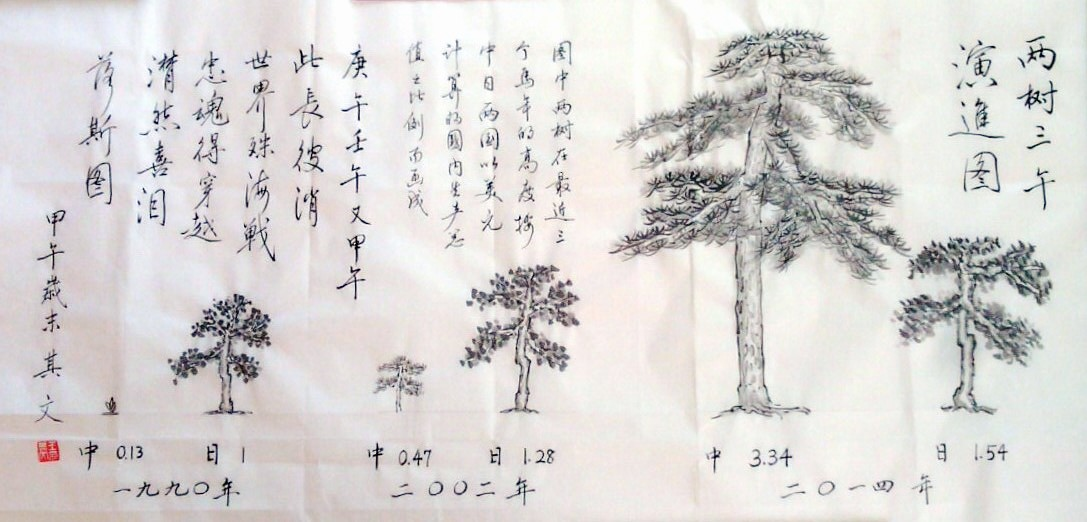 两树三午
演進图
图中两树在最近三
个馬年的高度按
中日两国以美元
计算的國内生产总
值之比例而画成
庚午壬午又甲午
此長彼消
世界殊海戰
忠魂得穿越
潸然喜泪
落斯图
甲午歲末其文
中 0.13 日 1
一九九〇年
中 0.47 日 1.28
二〇〇二年
中 3.34 日 1.54
二〇一四年